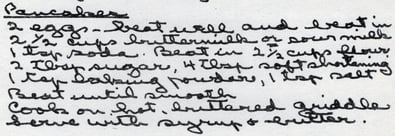 Pancakes
2 eggs - beat well and beat in
2 1/2 cups buttermilk or sour milk
1 tsp soda. Beat in 2 1/2 cups flour
2 tbsp sugar, 4 tbsp soft shortening
1 tsp baking powder, 1 tsp salt
Beat until smooth
Cook on hot, buttered griddle
Serve with syrup & butter.